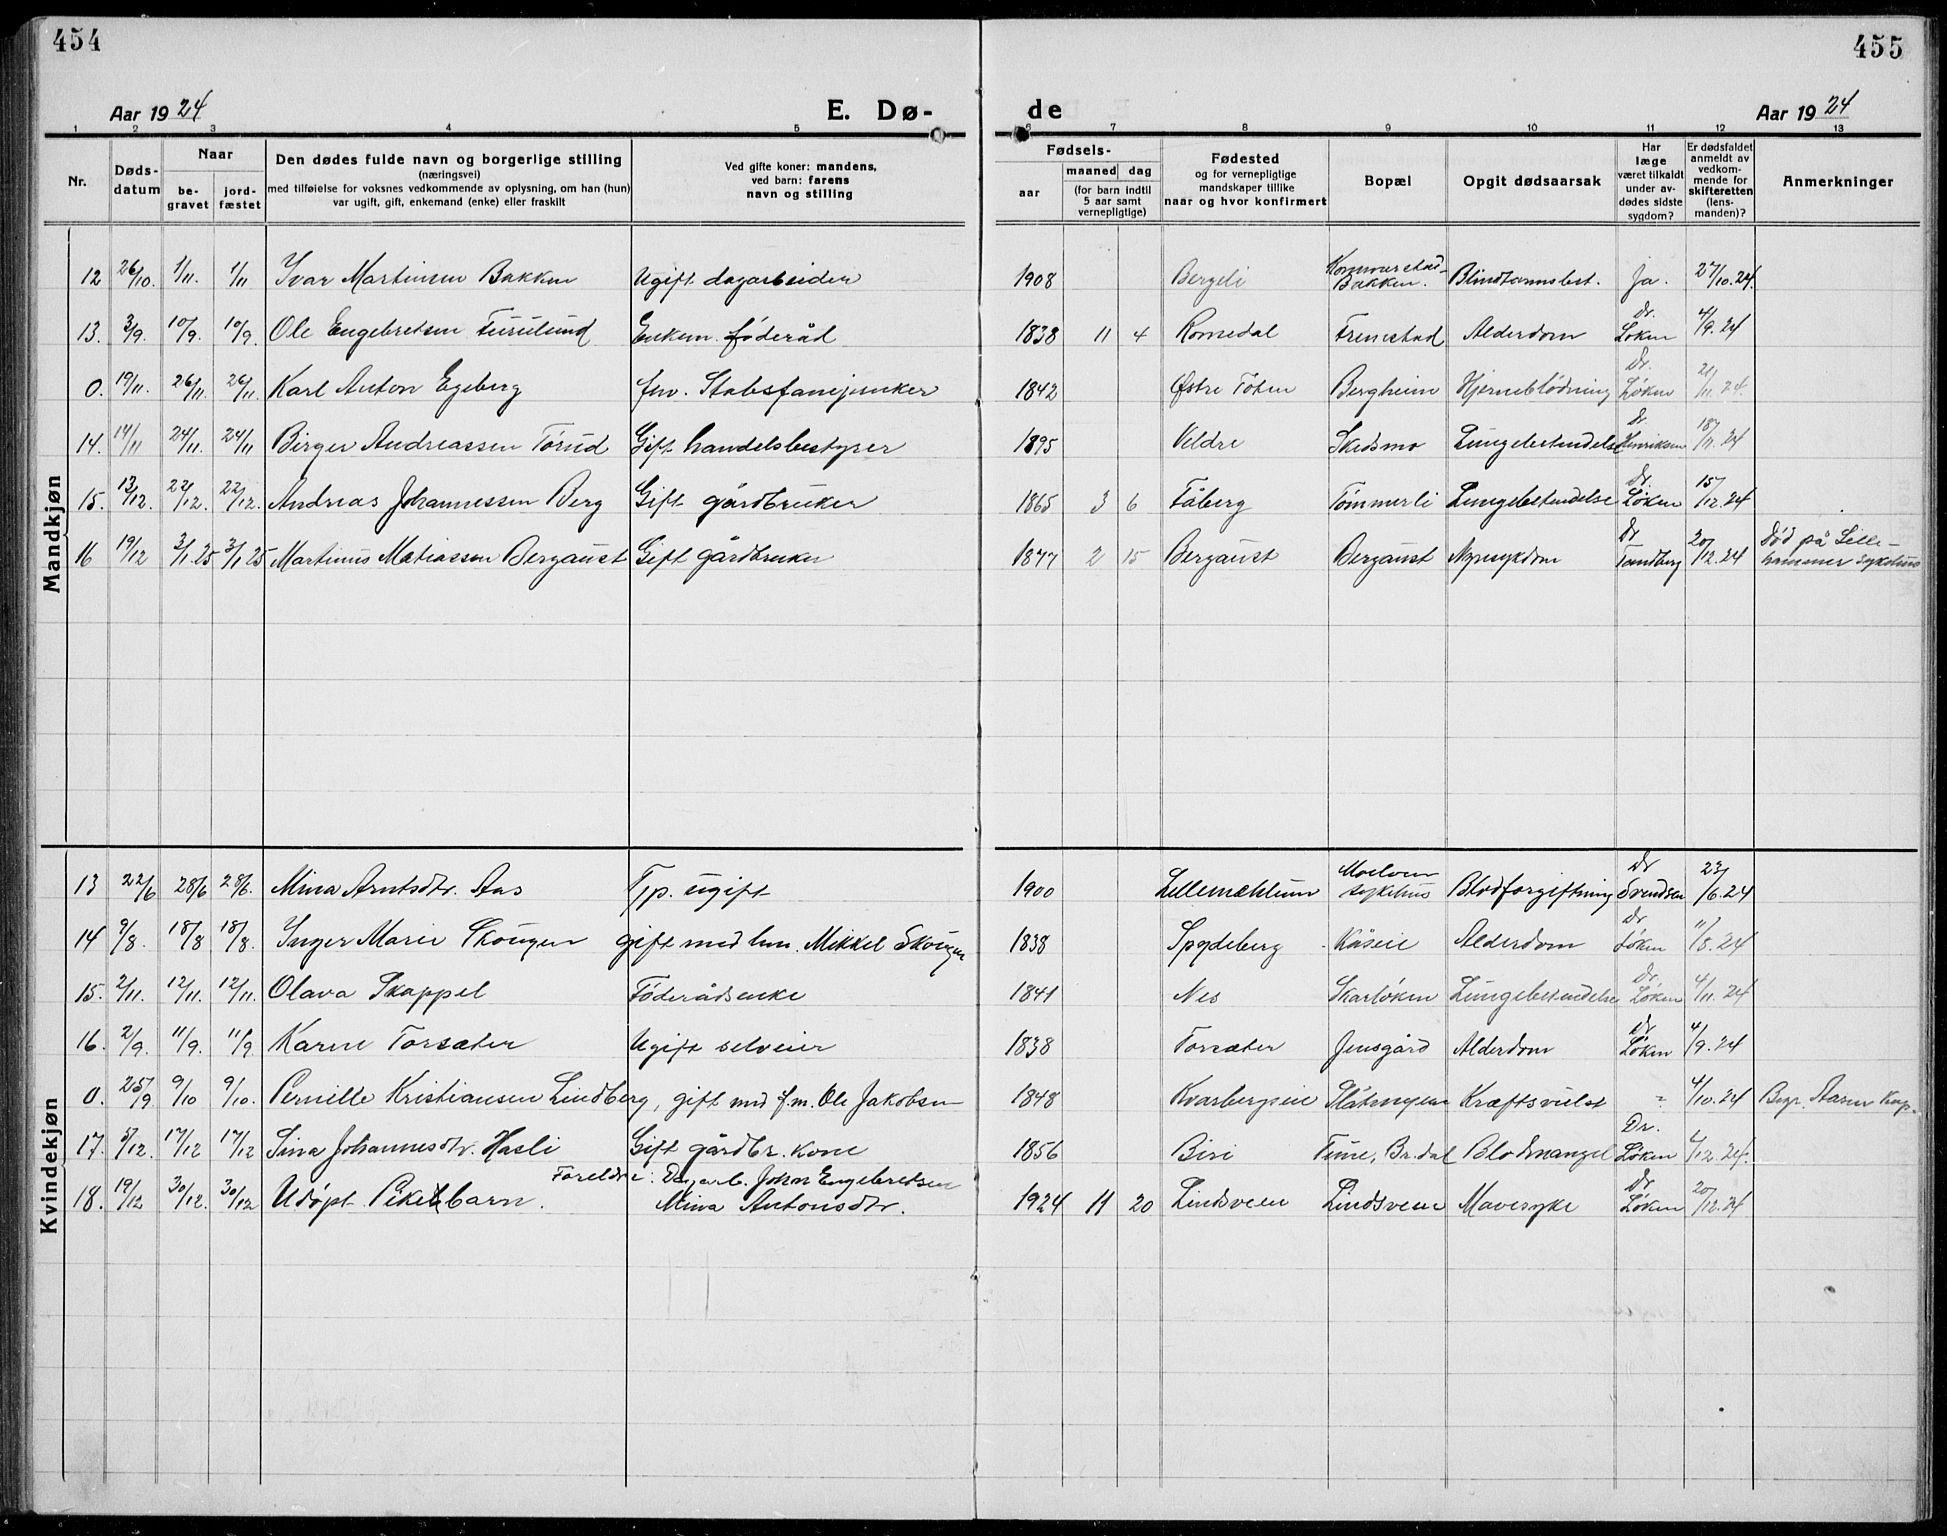 454
455
Aar 1924
E. Dø-
de
Aar 1924
1 2 3 4 5 6 7 8 9 10 11 12 13
Nr.
Døds-
datum
Naar
be-
gravet
jord-
fæstet
Den dødes fulde navn og borgerlige stilling
(næringsvei)
med tilføielse for voksnes vedkommende av oplysning, om han (hun)
var ugift, gift, enkemand (enke) eller fraskilt
Ved gifte koner: mandens,
ved barn: farens
navn og stilling
Fødsels-
aar
maaned dag
(for barn indtil
5 aar samt
vernepligtige)
Fødested
og for vernepligtige
mandskaper tillike
naar og hvor konfirmert
Bopæl
Opgit dødsaarsak
Har
læge
været tilkaldt
under av-
dødes sidste
sygdom?
Er dødsfaldet
anmeldt av
vedkom-
mende for
skifteretten
(lens-
manden)?
Anmerkninger
Mandkjøn
12 26/10. 1/11. 1/11 Ivar Martinsen Bakken Ugift dagarbeider 1908 Bergeli Kommerstad-Bakken. Blindtarmsbet. Ja. 27/10.24.
13. 3/9. 10/9. 10/9. Ole Engebretsen Furulund Enkem. føderåd 1838 11 4 Romedal Fremstad Alderdom Dr. Løken 4/9.24
0. 19/11. 26/11. 26/11 Karl Anton Egeberg fm. Stabsfanejunker 1842 Østre Toten Bergheim Hjerneblødning Dr. Løken 21/11.24.
14. 14/11 24/11. 24/11 Birger Andreassen Torud Gift handelsbestyrer 1895 Veldre Skedsmo Lungebetendelse Dr Henriksen 18/11.24
15. 13/12. 22/12. 22/12. Andreas Johannessen Berg Gift gårdbruker 1865 3 6 Fåberg Tømmerli Lungebetendelse Dr. Løken 15/12.24
16 19/12 3/1.25 3/1 25 Martinus Matiassen Bergaust Gift gårdbruker 1877 2 15 Bergaust Bergaust Nyresykdom Dr Tandberg 20/12.24 Død på Lille-
hammer sykehus
Kvindekjøn
13 22/6 28/6 28/6. Mina Arntsdtr. Aas Tjp. ugift 1900 Lillemæhlum Moelven sykehus Blodforgiftning Dr Svendsen 23/6.24
14 9/8. 18/8 18/8. Inger Marie Skougen gift med hm. Mikkel Skougen 1838 Spydeberg Kåseie Alderdom Dr Løken 11/8.24
15. 2/11. 12/11. 12/11. Olava Skappel Føderådsenke 1841 Nes Skarløken Lungebetendelse Dr. Løken 4/11.24
16. 2/9. 11/9. 11/9 Karen Torsæter Ugift selveier 1838 Torsæter Jensgård Alderdom Dr Løken 4/9.24
0. 25/9 9/10 9/10. Pernille Kristiansen Lindberg, gift med f.m. Ole Jakobsen 1848 Kvarbergseie Slåtmyren Kræftsvulst - 4/10.24 Begr. Aasen Kap.
17. 5/12. 17/12 17/12 Sina Johannesdtr. Hasli Gift gårdbr. kone 1856 Biri Br.dal Blodmangel Dr. Løken 6/12.24.
18. 19/12 30/12. 30/12 Udøpt Pikebarn. Foreldre: Dagarb. John Engebretsen
Mina Antonsdtr. 1924 11 20 Lindsveen Lindsveen Mavesyke Dr Løken 20/12.24